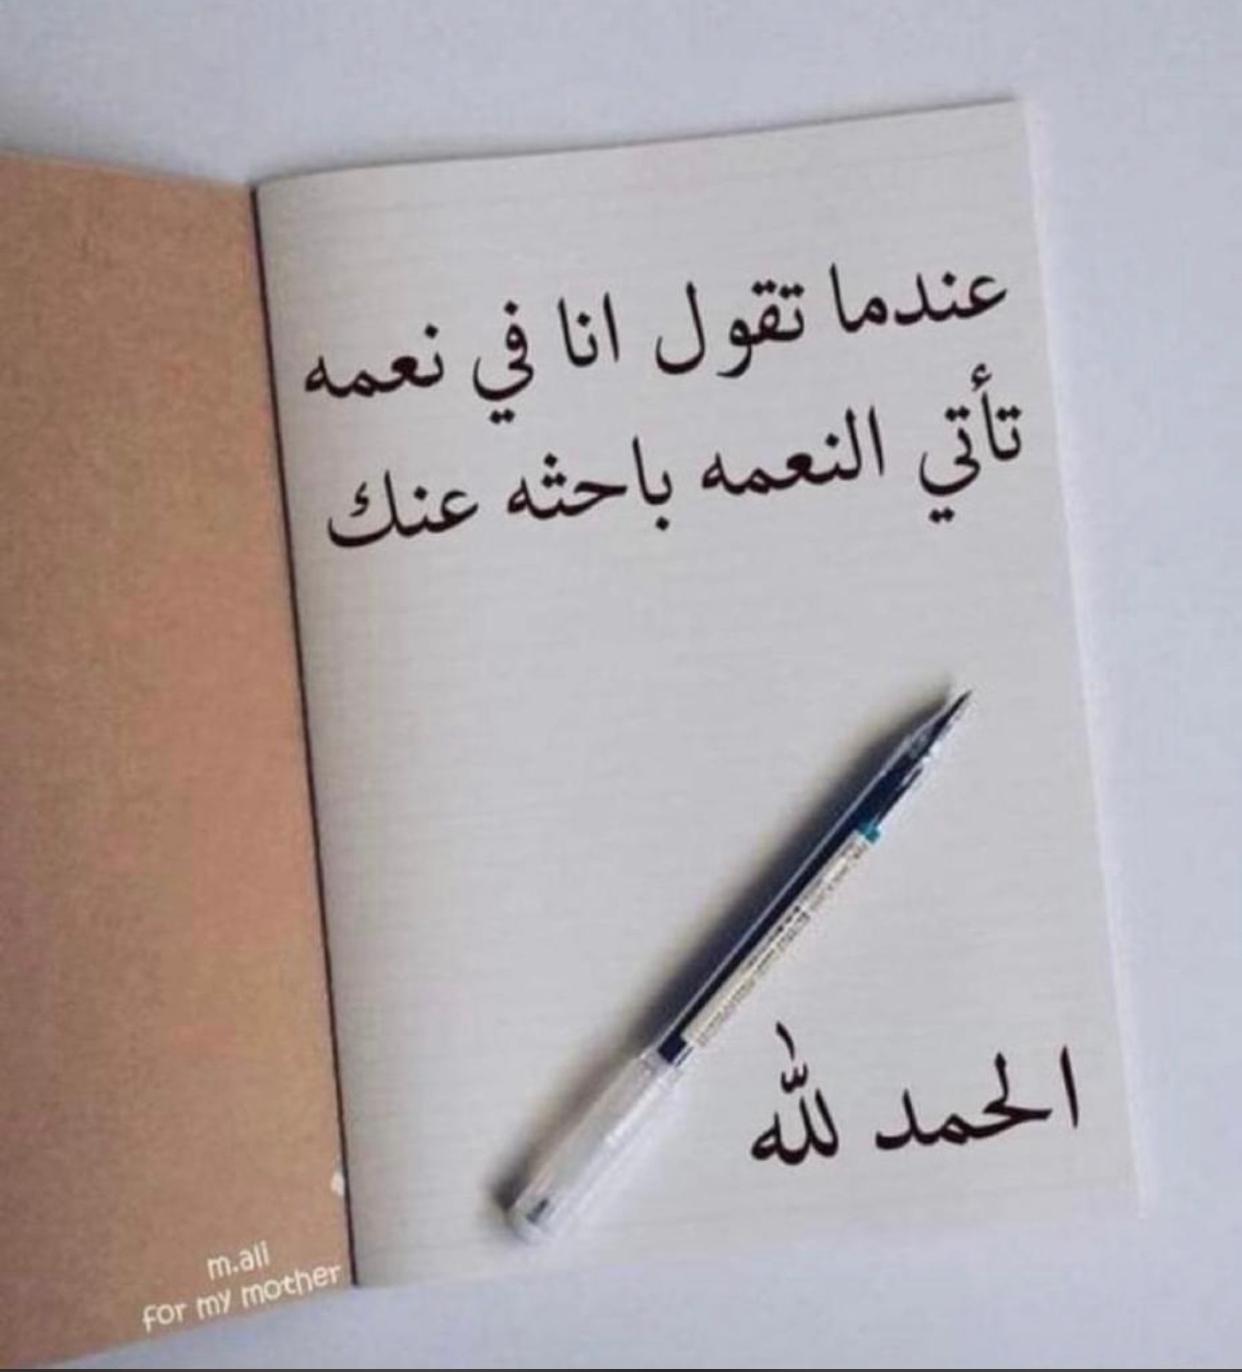 عندما تقول انا في نعمه
تأتي النعمه باحثه عنك
الحمد لله
m.ali
for my mother